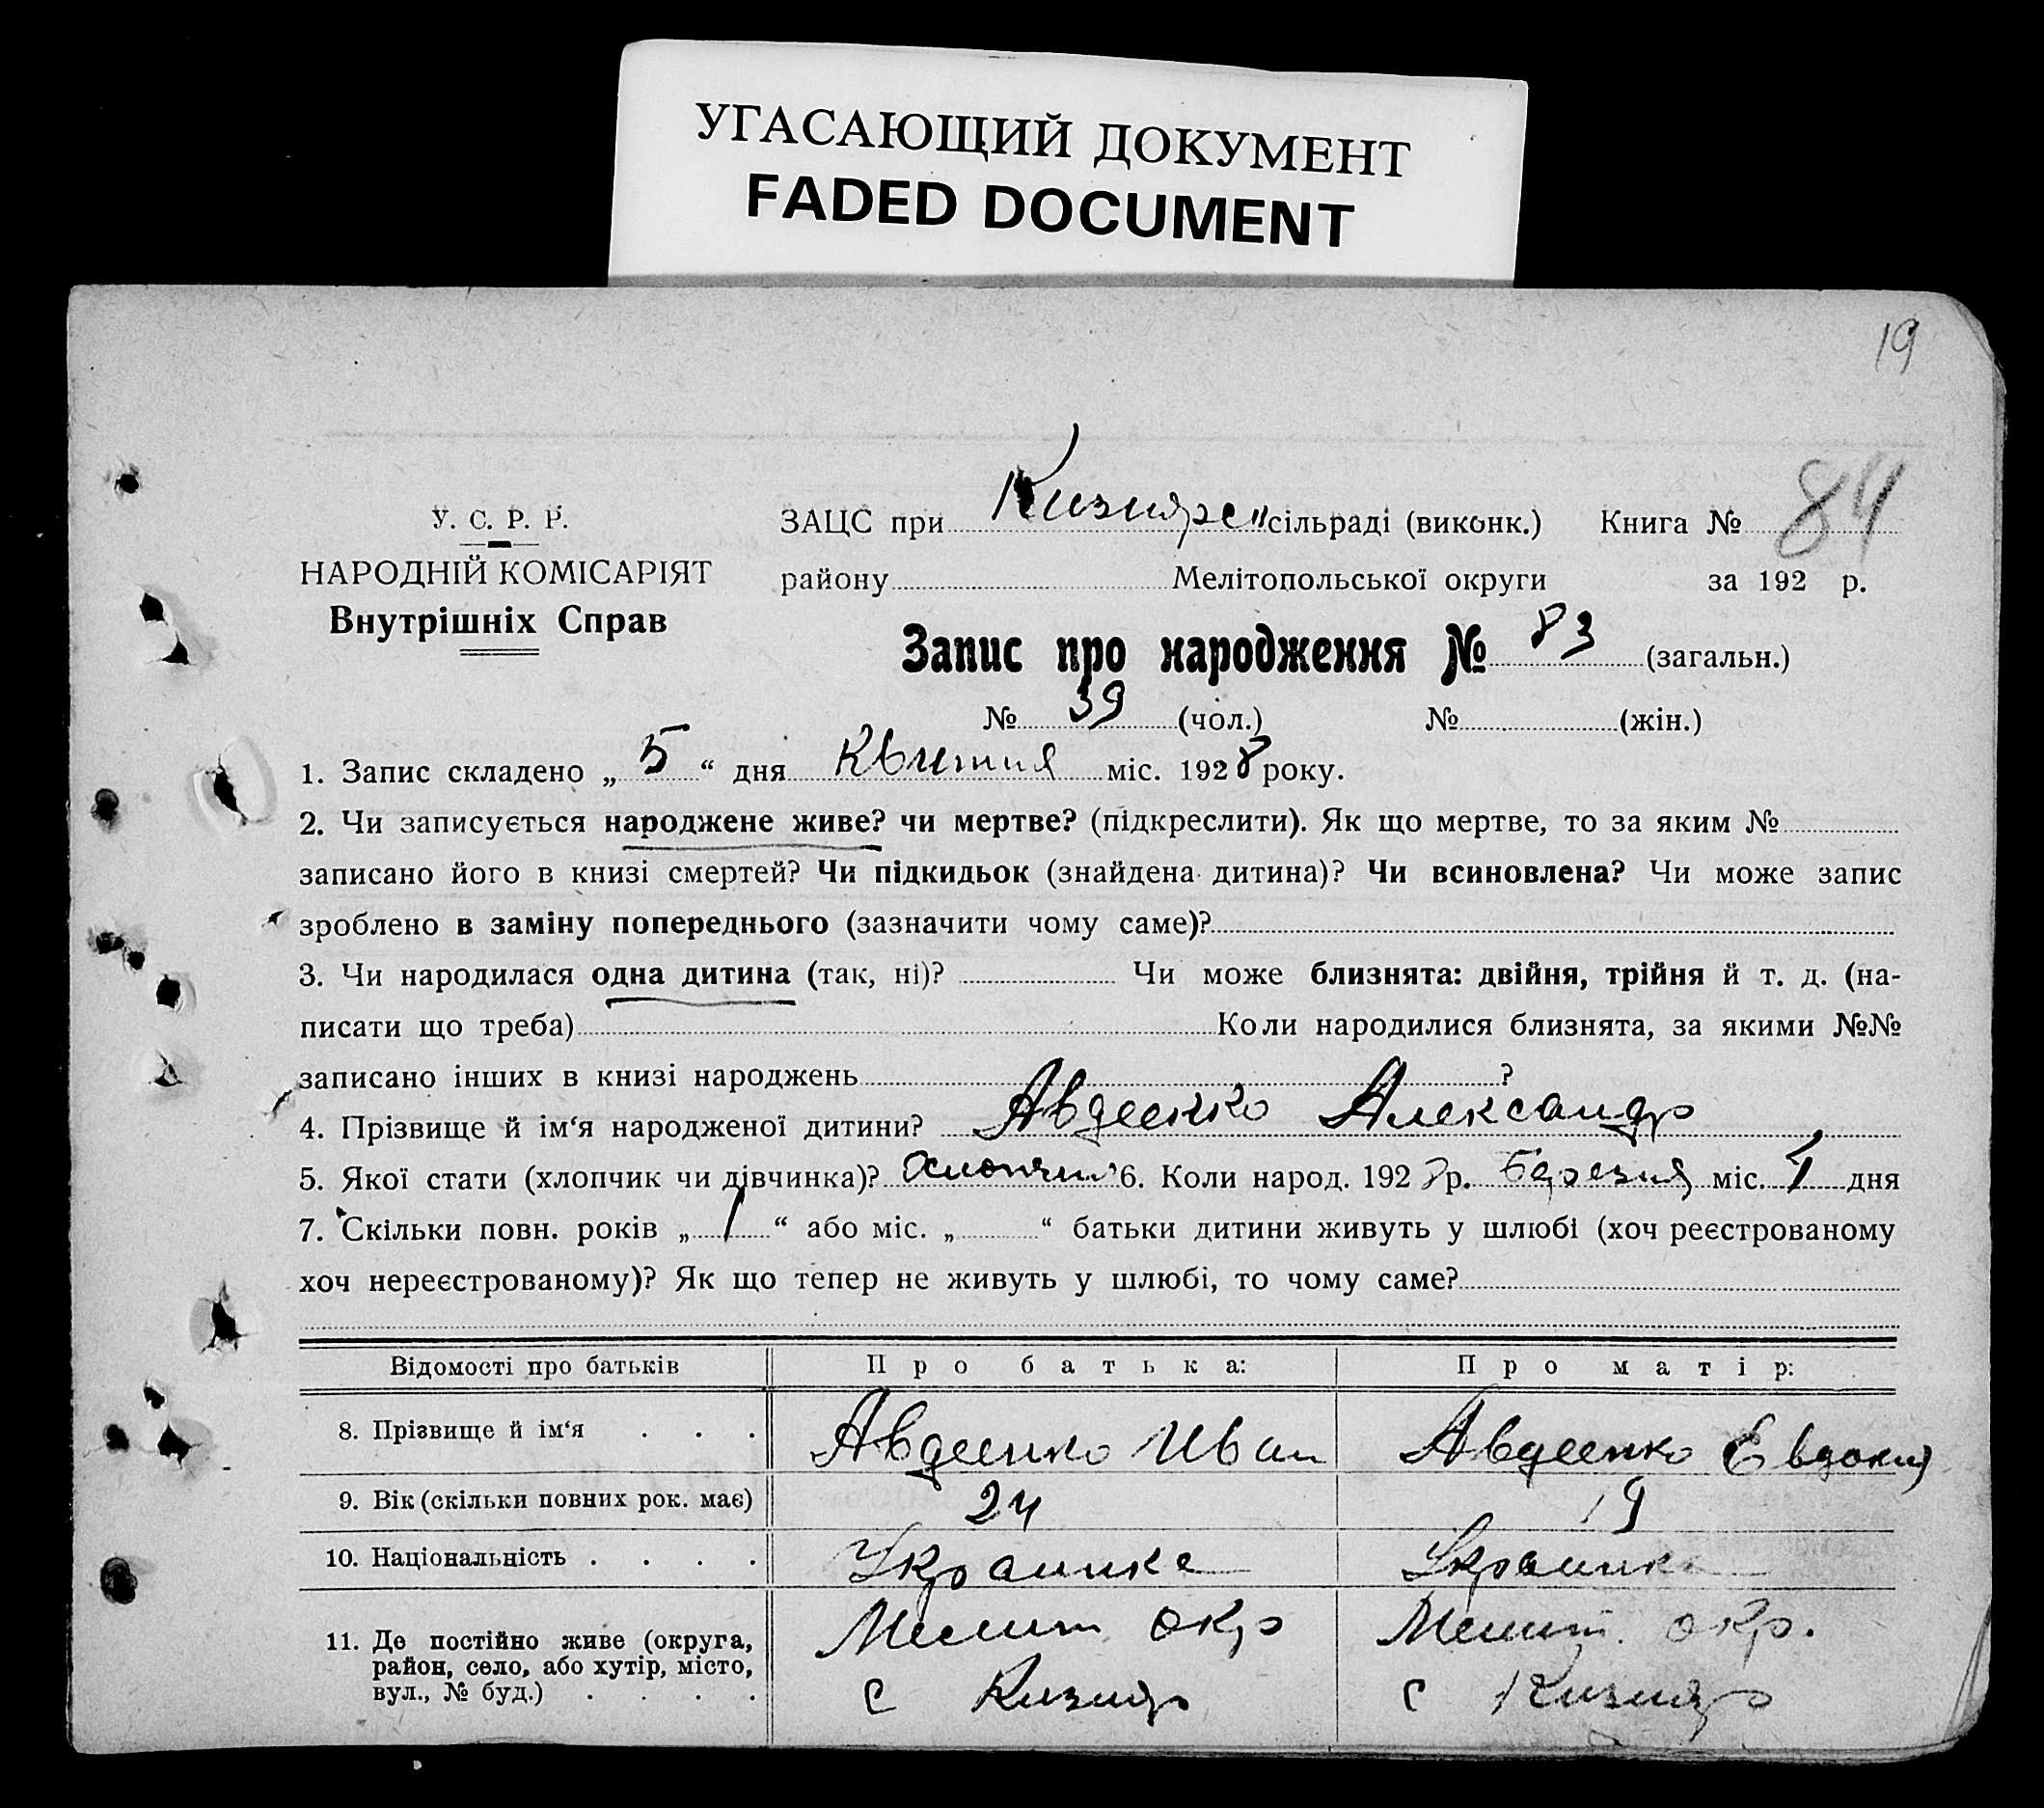 УГАСАЮЩИЙ ДОКУМЕНТ
FADED DOCUMENT
19
У. С. Р. Р.
НАРОДНІЙ КОМІСАРІЯТ
Внутрішніх Справ
ЗАЦС при Кизиярс сільраді (виконк.) Книга № 84
району Мелітопольської округи за 192 р.
Запис про народження № 83 (загальн.)
№ 39 (чол.) № (жін.)
1. Запис складено „ 5 “ дня Квитня міс. 1928 року.
2. Чи записується народжене живе? чи мертве? (підкреслити). Як що мертве, то за яким №
записано його в книзі смертей? Чи підкидьок (знайдена дитина)? Чи всиновлена? Чи може запис
зроблено в заміну попереднього (зазначити чому саме)?
3. Чи народилася одна дитина (так, ні)? Чи може близнята: двійня, трійня й т. д. (на-
писати що треба) Коли народилися близнята, за якими №№
записано інших в книзі народжень ?
4. Прізвище й ім‘я народженої дитини? Авдеенко Александр
5. Якої стати (хлопчик чи дівчинка)? 6. Коли народ. 1928 р. Березня міс. 1 дня
7. Скільки повн. років „ 1 “ або міс. „ “ батьки дитини живуть у шлюбі (хоч реєстрованому
хоч нереєстрованому)? Як що тепер не живуть у шлюбі, то чому саме?
Відомості про батьків Про батька: Про матір:
8. Прізвище й ім‘я . . . Авдеенко Иван Авдеенко Евдокия
9. Вік (скільки повних рок. має) 24 19
10. Національність . . . . Украинке Украинка
11. Де постійно живе (округа, район, село, або хутір, місто, вул., № буд.) . . . . Мелит. окр Мелит. окр.
с Кизияр с Кизияр